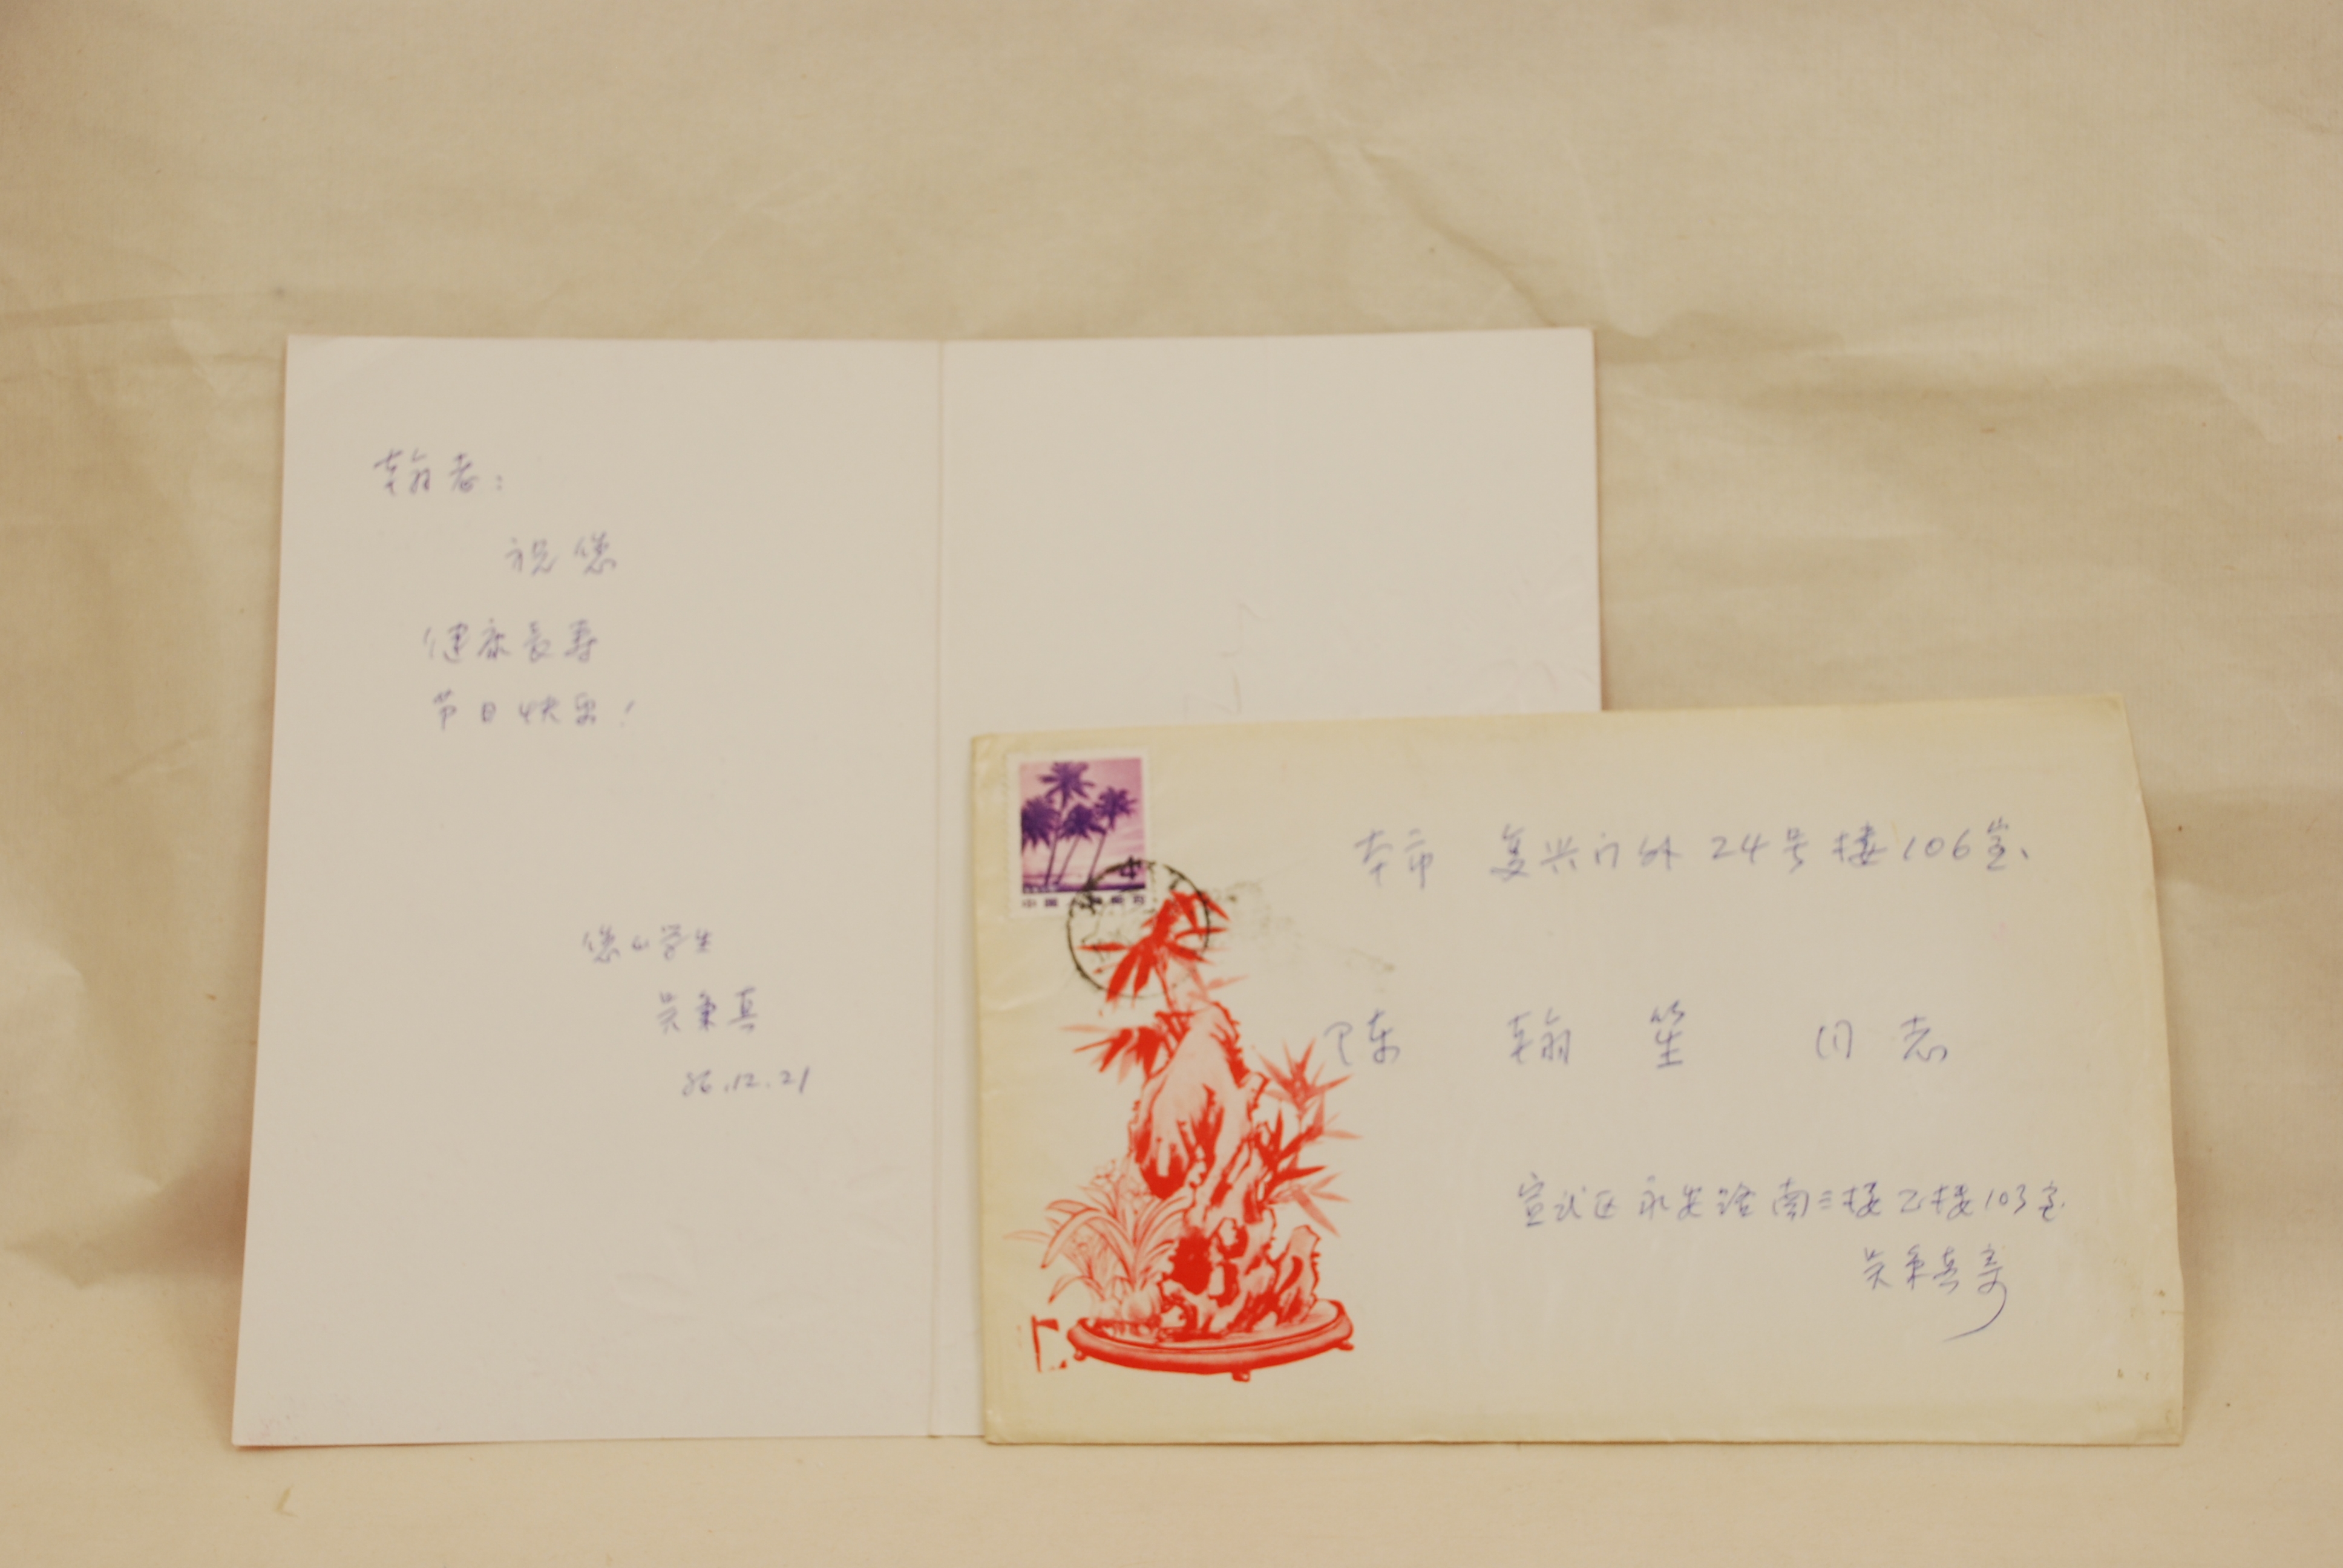 翰老：
祝您
健康长寿
节日快乐！
您的学生
吴秉真
86.12.21
4
中国人民邮政
本市 复兴门外24号楼106室
陈翰笙 同志
宣武区永安路南三楼乙楼103室
吴秉真寄